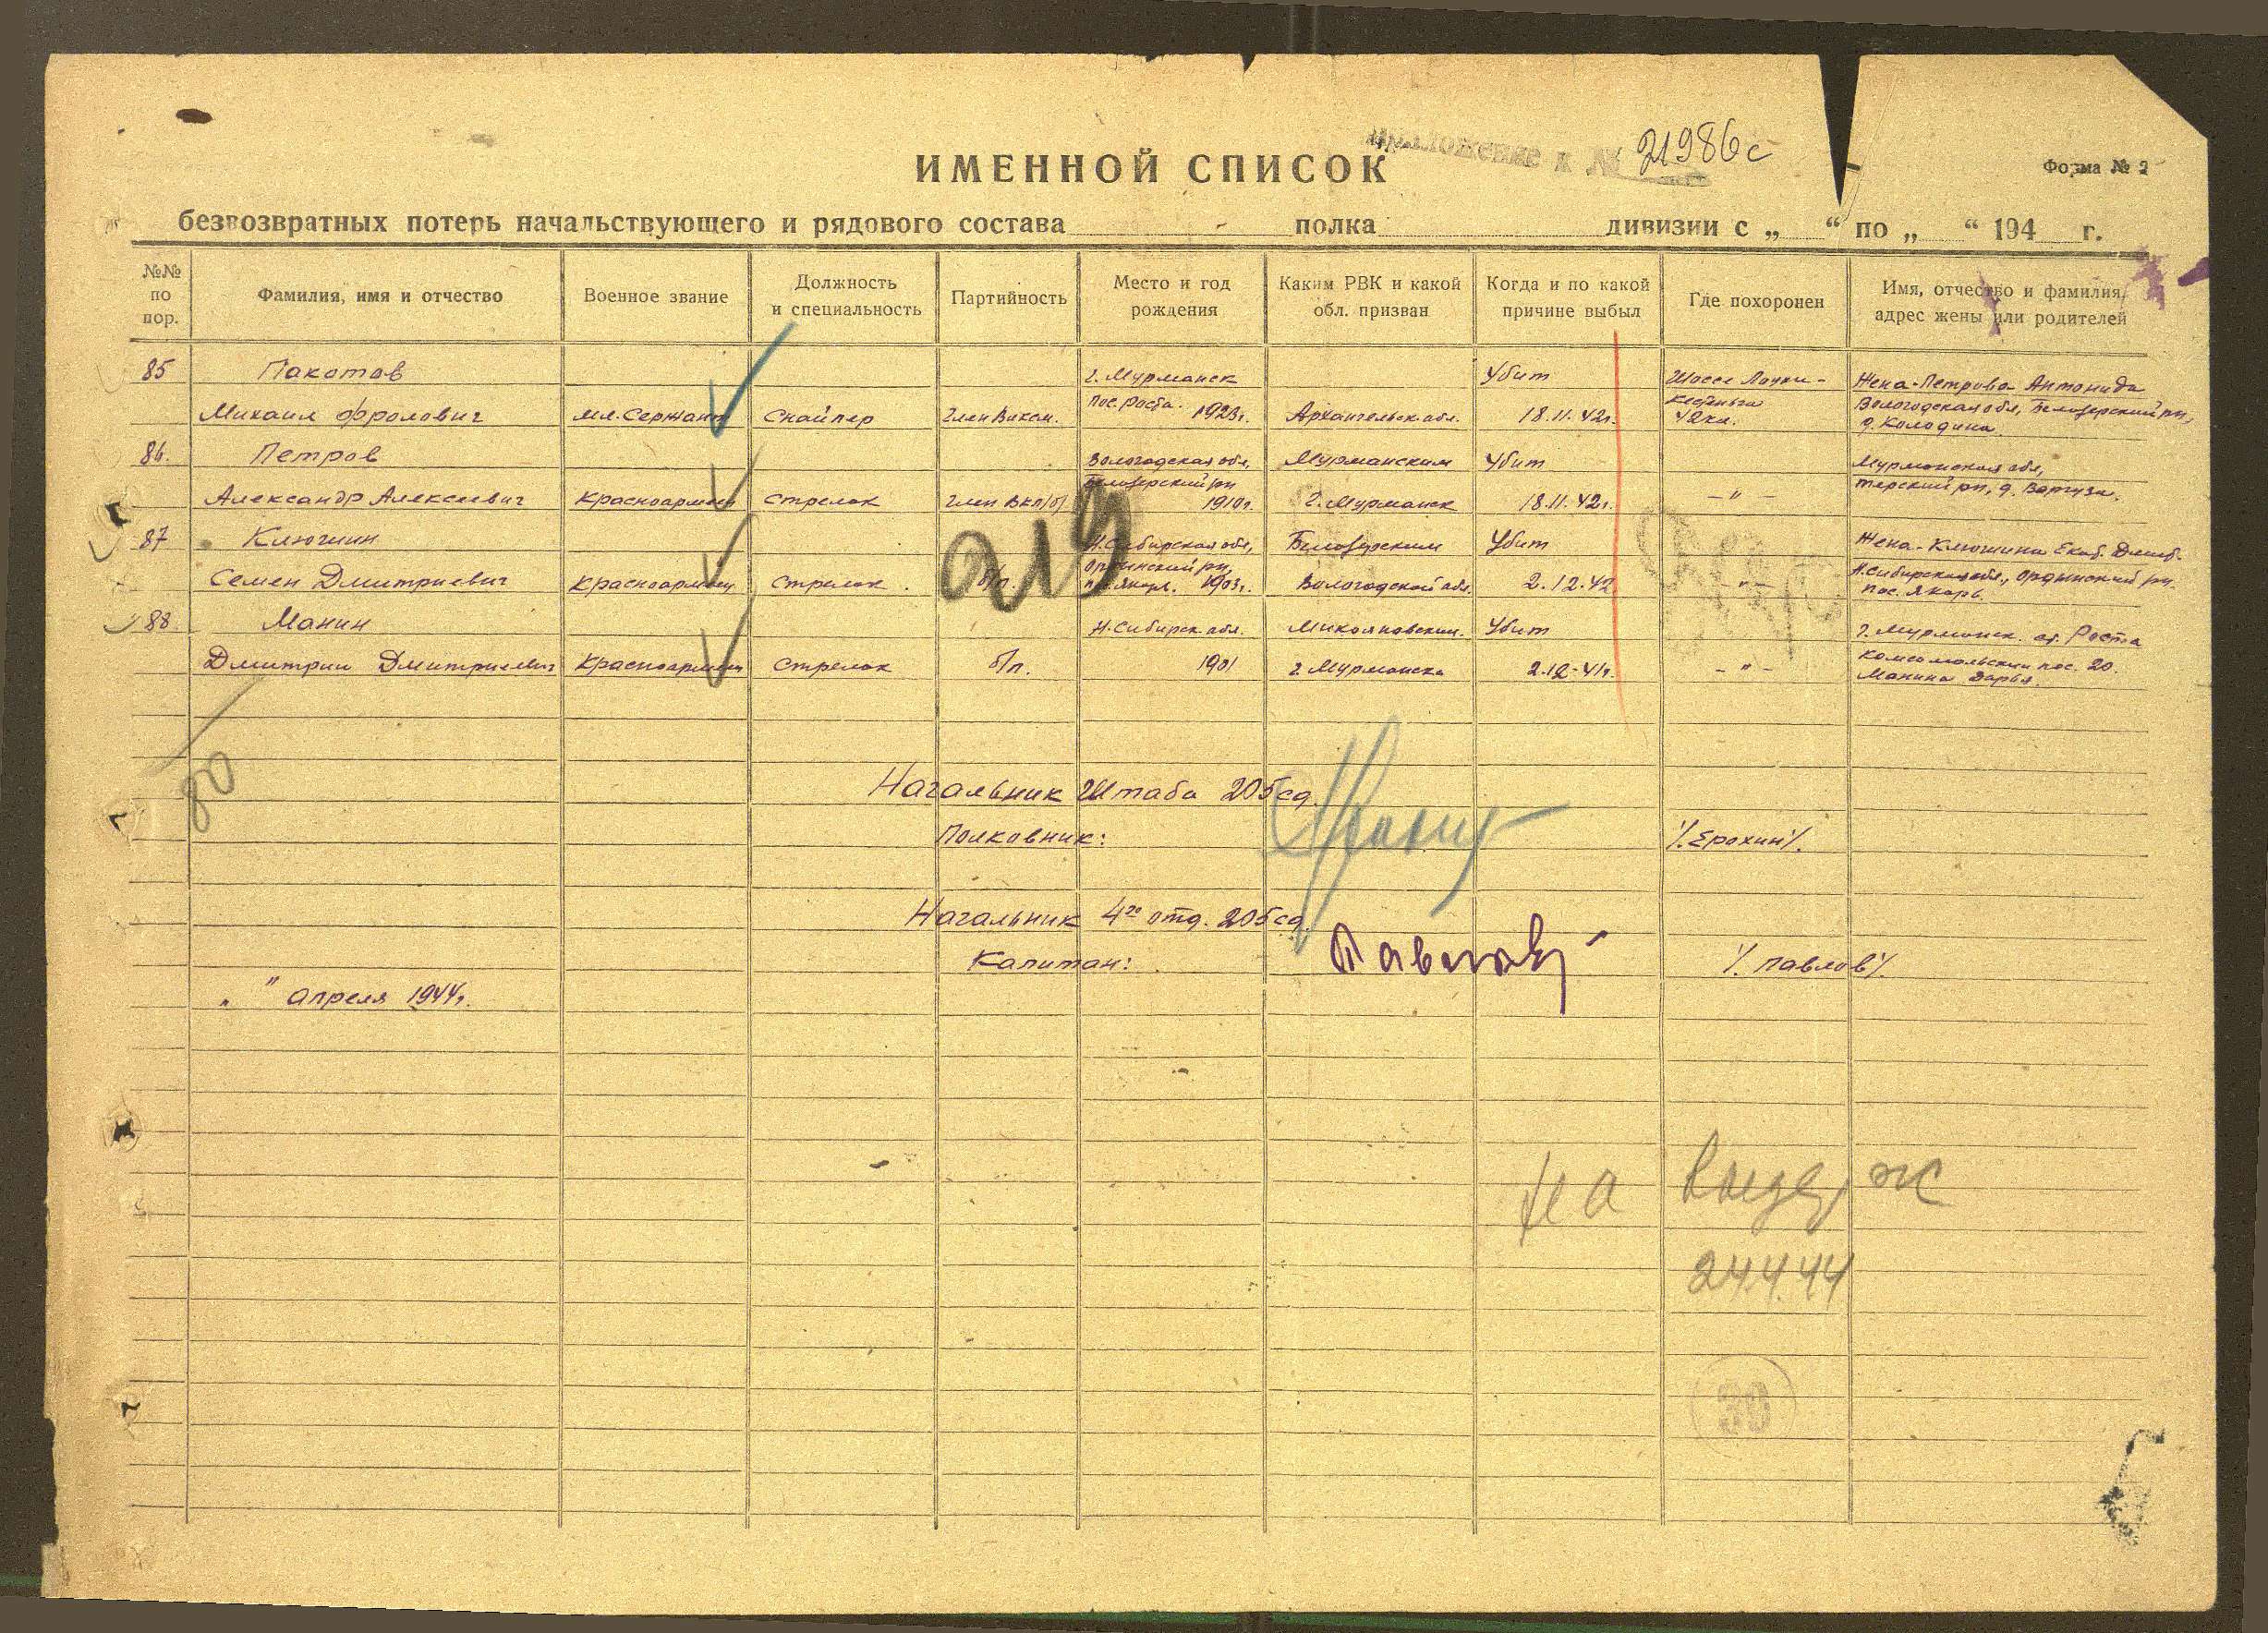 приложение к № 21986с
ИМЕННОЙ СПИСОК
Форма № 2
безвозвратных потерь начальствующего и рядового состава полка дивизии с „ “ по „ “ 194 г.
№№ по пор.
Фамилия, имя и отчество
Военное звание
Должность и специальность
Партийность
Место и год рождения
Каким РВК и какой обл. призван
Когда и по какой причине выбыл
Где похоронен
Имя, отчество и фамилия, адрес жены или родителей
85 Пакотов г. Мурманск Убит Шоссе Лоухи- Жена-Петрова Антонида
Михаил Фролович мл. Сержант Снайпер пос. Роста. 1923г. Архангельск. обл. 18.11.42г. Кестеньга 42км. Вологодская обл, Белозерский рн,
д. Колодина
86. Петров Вологодская обл, Мурманским Убит Мурманская обл,
Александр Алексеевич Красноармеец Стрелок Член ВКП/б/ Белозерский рн 1910г. г. Мурманск 18.11.42г. -"- Терский рн, д. Варзуга.
87 Клюшин Н.Сибирская обл, Белозерским Убит Жена-Клюшина Екат. Дмит.
Семен Дмитриевич Красноармеец Стрелок б/п. Ордынский рн, 1903г. Вологодской обл. 2.12.42 -"- Н.Сибирская обл., Ордынский рн.
пос. Якорь
88 Манин Н.Сибирск. обл. Микояновским. Убит г. Мурманск. ст. Роста
Дмитрий Дмитриевич Красноармеец Стрелок б/п. 1901 г. Мурманска 2.12-41г. -"- Комсомольский пос. 20.
Манина Дарья.
219
80
Начальник Штаба 205сд.
Полковник: /.Ерохин/.
Начальник 4го отд. 205сд.
Капитан: Павлов /.Павлов/.
„ " апреля 1944г.
на выдерж
24.4.44
30